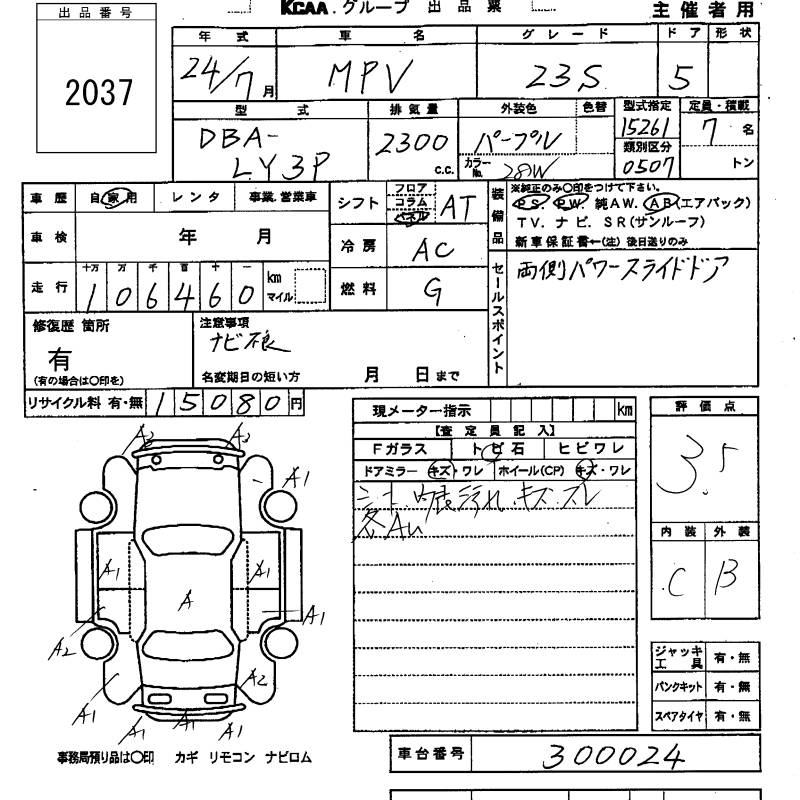 出品番号
2037
KCAA.グループ 出品票
主催者用
年式 車名 グレード ドア 形状
24/7月 MPV 23S 5
型式 排気量 外装色 色替 型式指定 定員・積載
DBA-LY3P 2300 c.c. パープル 15261 7名
カラーNo. 28W 類別区分 0507 トン
車歴 自家用 レンタ 事業.営業車
シフト フロア コラム パネル AT
装備品 ※純正のみ〇印をつけて下さい。
PS. PW. 純AW. AB(エアバック)
TV. ナビ. SR(サンルーフ)
新車保証書←(注)後日送りのみ
車検 年 月
冷房 AC
走行 十万 万 千 百 十 一
106460 km マイル
燃料 G
セールスポイント
両側パワースライドドア
修復歴 箇所
有
(有の場合は〇印を)
注意事項
ナビ不良
名変期日の短い方 月 日まで
リサイクル料 有・無 15080円
現メーター指示 km
【査定員記入】
Fガラス トビ石 ヒビワレ
ドアミラー キズ・ワレ ホイール(CP) キズ・ワレ
シート 内張汚れ キズ スレ
各AU
評価点
3.5
内装 外装
C B
A2 A2
A1
A1 A1
A
A1
A2
A2
A1 A1 A1 A1
ジャッキ工具 有・無
パンクキット 有・無
スペアタイヤ 有・無
事務局預り品は〇印 カギ リモコン ナビロム
車台番号 300024